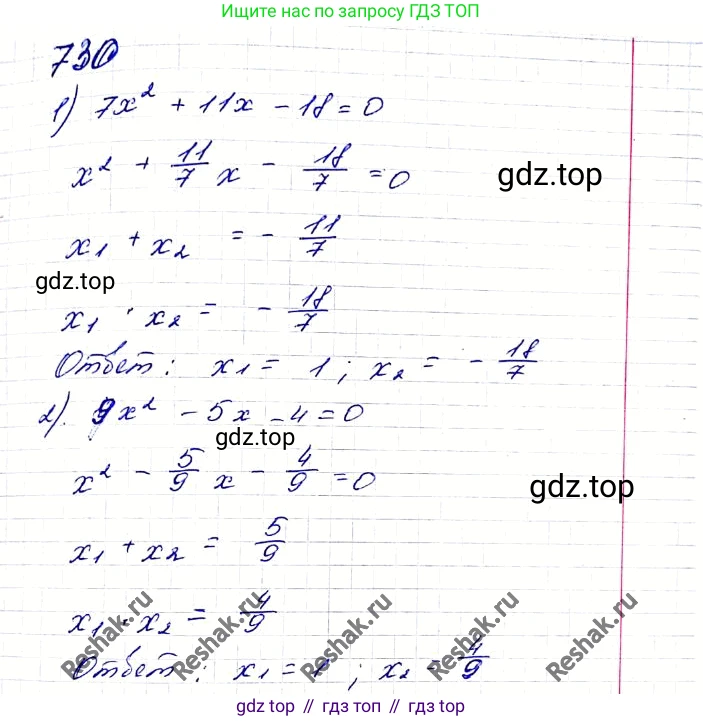 Ищите по запросу ГДЗ ТОП
730
1) 7x² + 11x - 18 = 0
x² + 11/7 x - 18/7 = 0
gdz.top
x₁ + x₂ = - 11/7
gdz.top
x₁ · x₂ = - 18/7
Ответ: x₁ = 1; x₂ = - 18/7
2). 9x² - 5x - 4 = 0
gdz.top
x² - 5/9 x - 4/9 = 0
gdz.top
x₁ + x₂ = 5/9
x₁ · x₂ = - 4/9
Reshak.ru Reshak.ru Reshak.ru Reshak.ru Reshak.ru
Ответ: x₁ = 1; x₂ = - 4/9
gdz top // гдз топ // гдз top